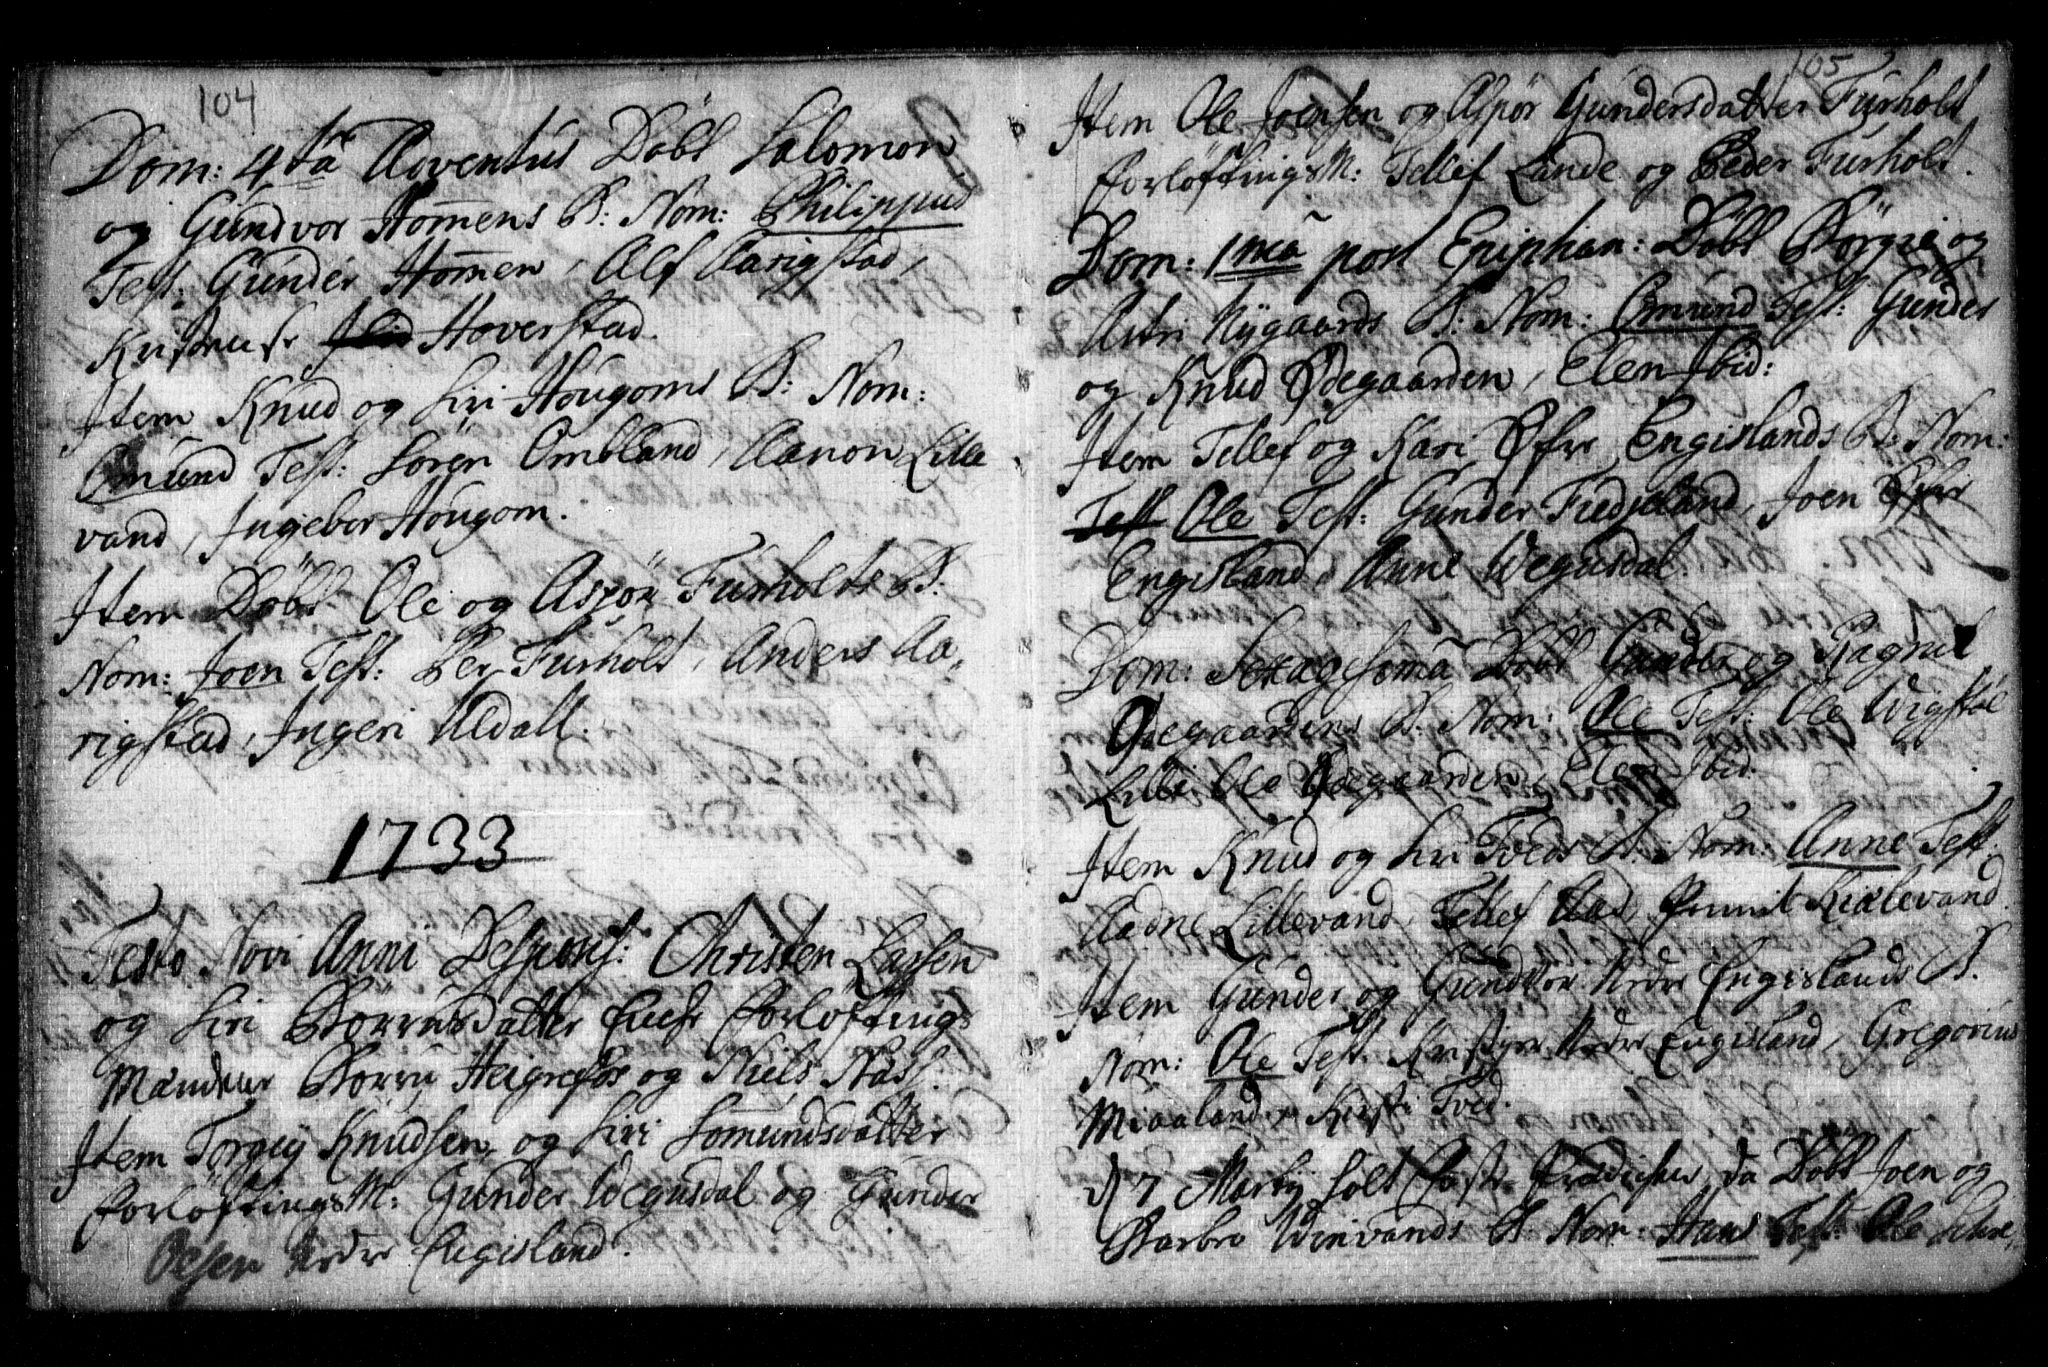 104
Dom: 4ta Adventus Døbt Salomon
og Gundvor Homens B: Nom: Philippus
Test: Gunder Homen, Alf Aarigstad,
Hoverstad.
Item Knud og Siri Hougoms B: Nom:
Omund Test: Sören Ombland, Aanon Lille
vand, Ingebor Hougom.
Item Döbt Ole og Aspör Furholts B:
Nom: Joen Test: Per Furholt, Anders Aa,
rigstad, Ingeri Uldall.
1733
Festo Novi Anni Despons: Christen Lassen
og Siri Börrusdatter forlöftings
Mændene Börru Heigrefos og Niels
Item Torgiy Knudsen og Siri Somundsdatter
forlöftingsM: Gunder Wegusdal og Gunder
Olsen Nedre Engisland.
105
Item Ole Joensen og Aspör Gundersdatter Furholt
forlöftingsM: Tellef Lande og Peder Furholt.
Dom: 1ma post Epiphan: Döbt Börgie og
Astri Nygaards B: Nom: Omund Test: Gunder
og Knud Ødegaarden, Elen Ibid:
Item Tellef og Kari Øfre Engislands B: Nom:
Test Ole Test: Gunder Fiedjeland, Joen Øfre
Engisland, Anne Wegusdal.
Dom: Sexagesima Döbt Gunder og Ragnil
Ødegaardens B: Nom: Ole Test: Ole Wigstøl
Lille Ole Ødegaarden, Elen Ibid.
Item Knud og Siri Tveds B: Nom: Anne Test:
Aadne Lillevand, Tellef Aas, Gunnil Kialevand.
Item Gunder og Gundvor Nedre Engislands B.
Nom: Ole Test: Nedre Engisland, Gregorius
Miaaland, Kirsti Tved.
d 7 Martij holt faste Prædiken, da Döbt Joen og
Barbro Winvands B: Nom: Hans Test: Ole